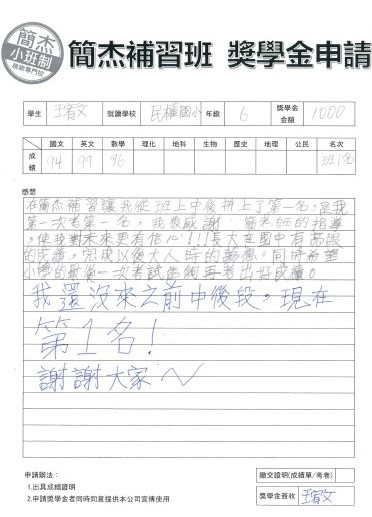 簡杰
小班制
簡杰補習班 獎學金申請
學生 王宥文 就讀學校 民權國小 年級 6 獎學金金額 1000
國文 英文 數學 理化 地科 生物 歷史 地理 公民 名次
成績 94 99 96 班1名
感想
在簡杰補習讓我從班上中後拼上了第一名,是我
第一次考第一名。我很感謝 老師的指導
,使我對未來更有信心!!!長大在國中有
的成績,完成以後大人時的夢想。同時希望
小學的最後一次考試能夠再考出好成績。
我還沒來之前中後段,現在
第1名!
謝謝大家~
申請辦法:
1.出具成績證明
2.申請獎學金者同時同意提供本公司宣傳使用
繳交證明(成績單/考卷)
獎學金簽收 王宥文